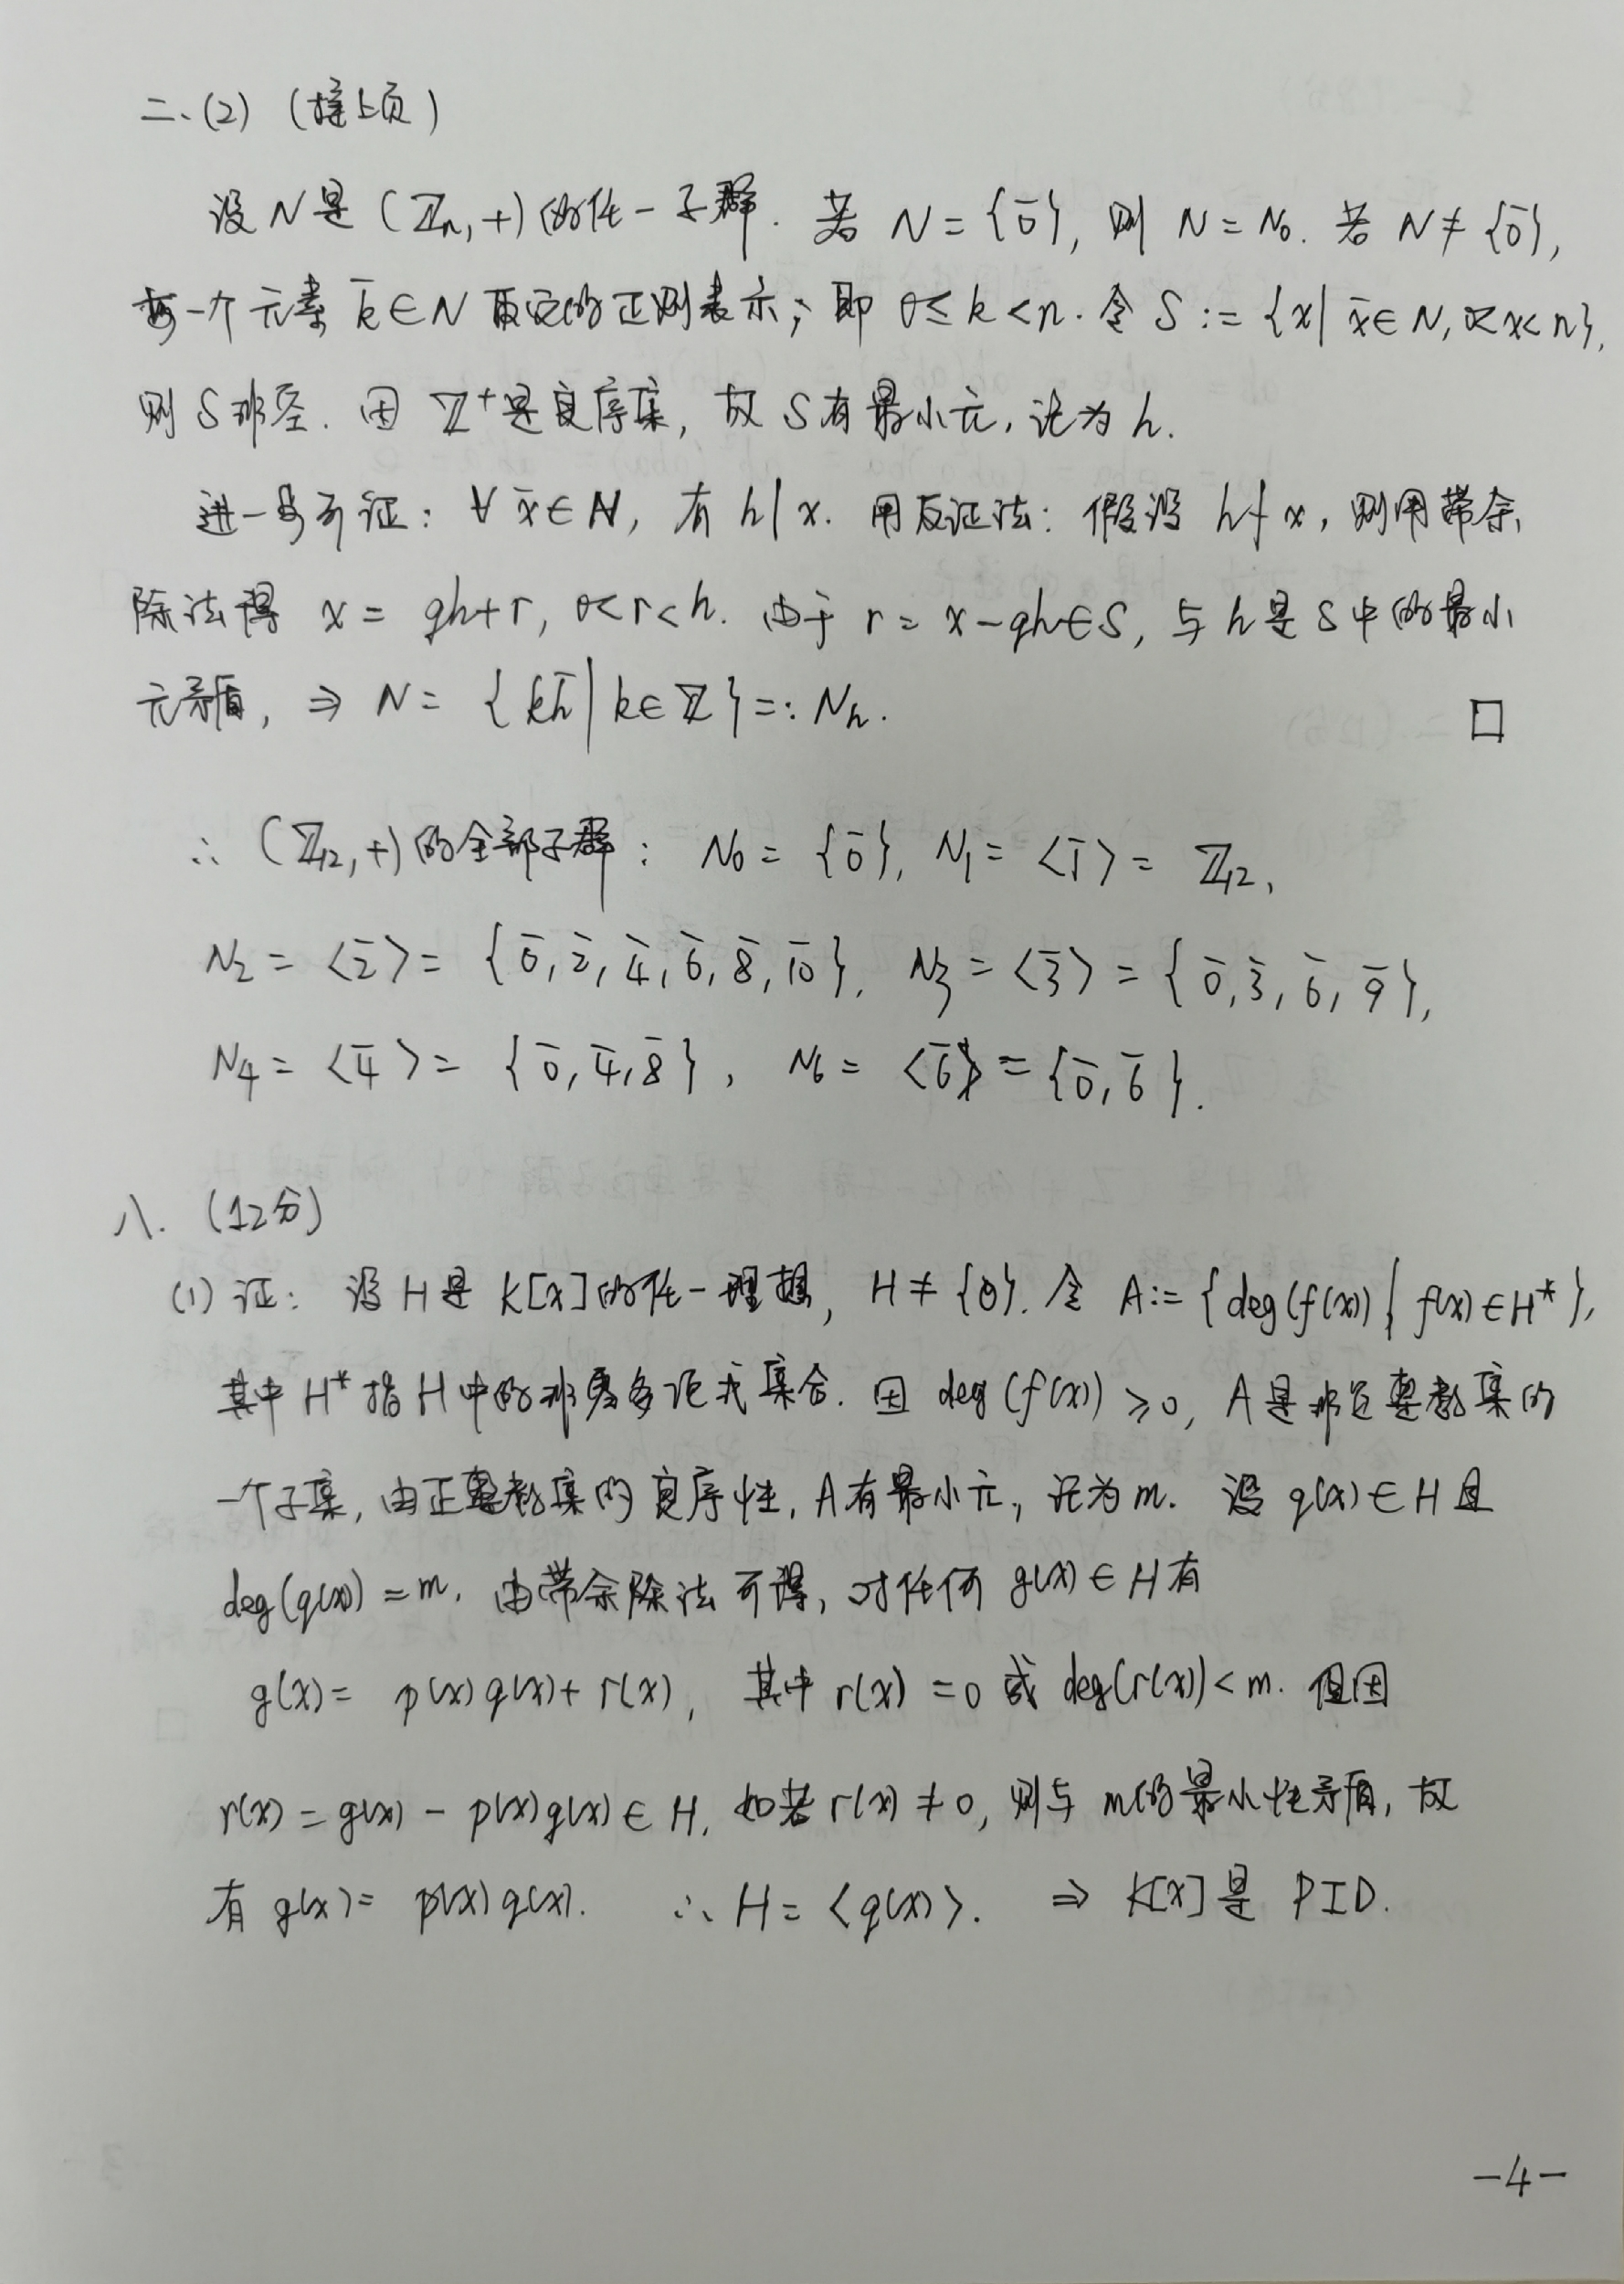 二、(2) (接上页)
设 N 是 (ℤn, +) 的任一子群. 若 N = {0̄}, 则 N = N₀. 若 N ≠ {0̄},
每一个元素 k̄ ∈ N 取它的正则表示, 即 0 ≤ k < n. 令 S := {x | x̄ ∈ N, 0 < x < n},
则 S 非空. 因 ℤ⁺ 是良序集, 故 S 有最小元, 记为 h.
进一步可证: ∀ x̄ ∈ N, 有 h | x. 用反证法: 假设 h ∤ x, 则用带余
除法得 x = qh + r, 0 < r < h. 由于 r = x - qh ∈ S, 与 h 是 S 中的最小
元矛盾, ⇒ N = { kh̄ | k ∈ ℤ } =: Nh. □
∴ (ℤ12, +) 的全部子群: N₀ = {0̄}, N₁ = <1̄> = ℤ12,
N₂ = <2̄> = {0̄, 2̄, 4̄, 6̄, 8̄, 1̄0̄}, N₃ = <3̄> = {0̄, 3̄, 6̄, 9̄},
N₄ = <4̄> = {0̄, 4̄, 8̄}, N₆ = <6̄> = {0̄, 6̄}.
八. (12分)
(1) 证: 设 H 是 K[x] 的任一理想, H ≠ {0}. 令 A := {deg(f(x)) | f(x) ∈ H*},
其中 H* 指 H 中的非零多项式集合. 因 deg(f(x)) ≥ 0, A 是非负整数集的
一个子集, 由正整数集的良序性, A 有最小元, 记为 m. 设 q(x) ∈ H 且
deg(q(x)) = m. 由带余除法可得, 对任何 g(x) ∈ H 有
g(x) = p(x)q(x) + r(x), 其中 r(x) = 0 或 deg(r(x)) < m. 但因
r(x) = g(x) - p(x)q(x) ∈ H, 如若 r(x) ≠ 0, 则与 m 的最小性矛盾, 故
有 g(x) = p(x)q(x). ∴ H = <q(x)>. ⇒ K[x] 是 PID.
-4-